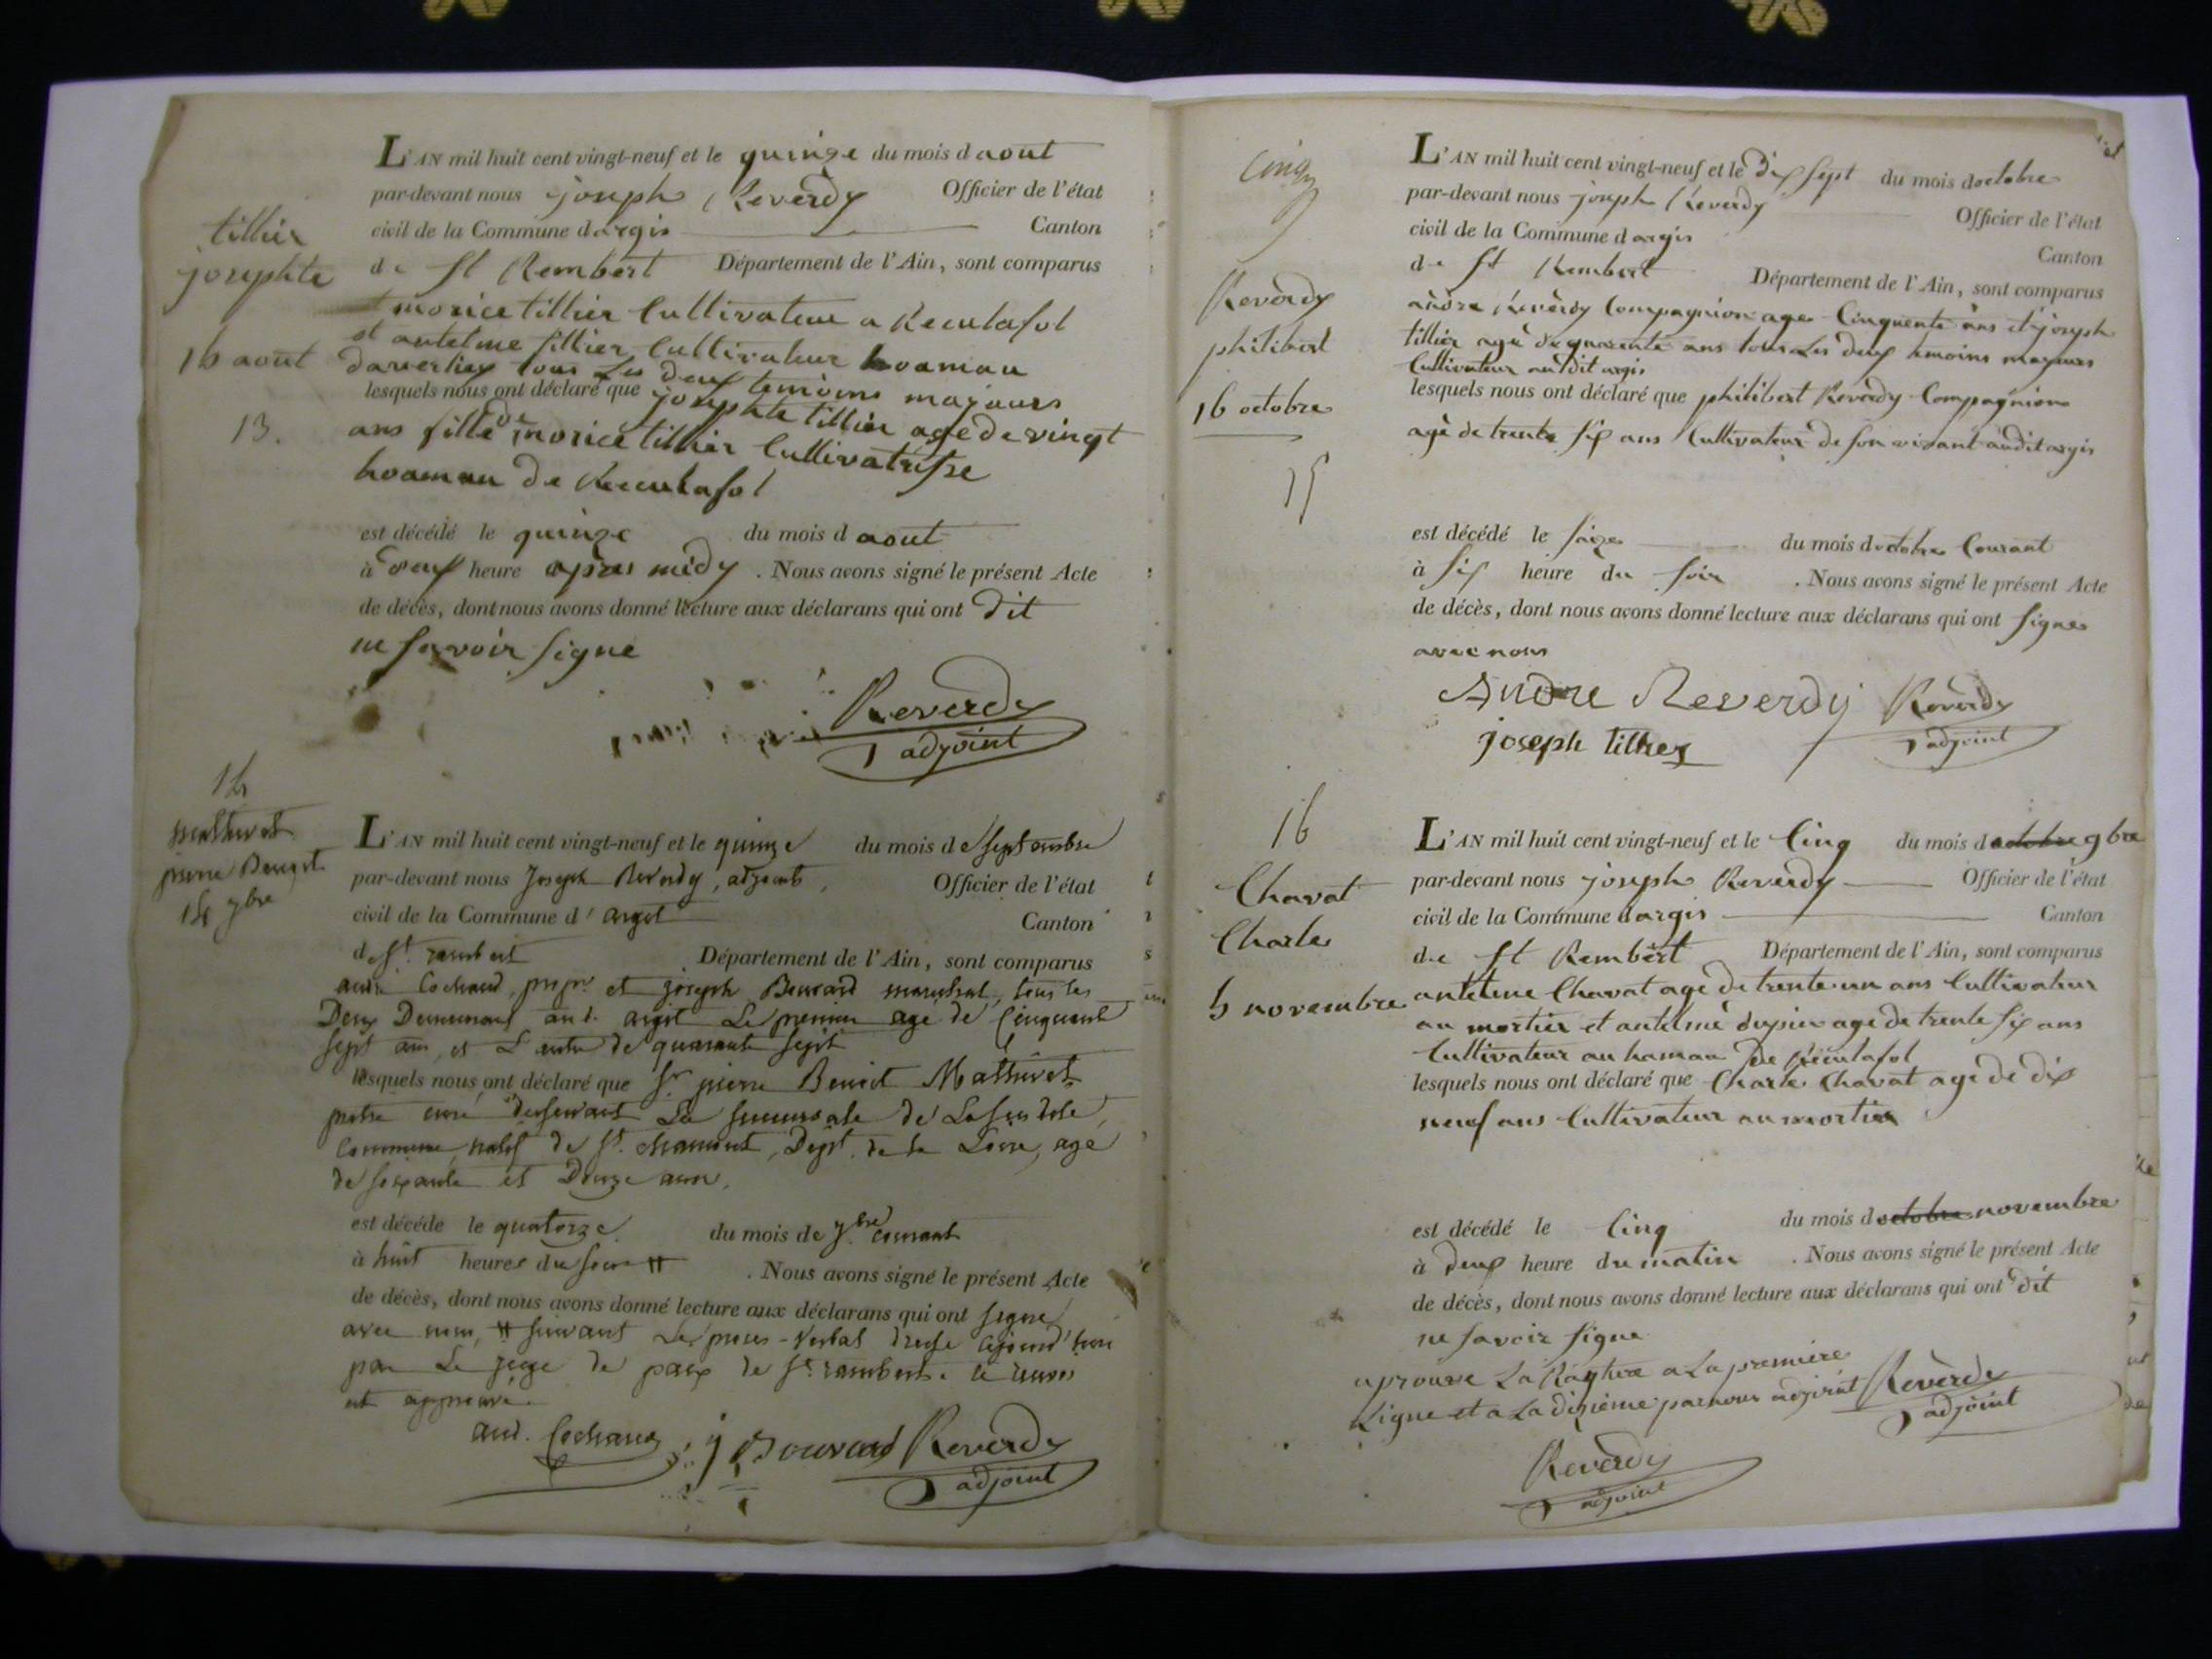 tillier
josephte
16 aout
13.
L'AN mil huit cent vingt-neuf et le quinze du mois d aout
par-devant nous joseph Reverdy Officier de l'état
civil de la Commune d argis Canton
de St Rembert Département de l'Ain, sont comparus
morice tillier Cultivateur a Reculafol
et antelme tillier Cultivateur hoamau
daverliey tous Les deux temoins majeurs
lesquels nous ont déclaré que josephte tillier age de vingt
ans fille de morice tillier Cultivatrisse
hoamau De Reculafol
est décédé le quinze du mois d aout
à deux heure apres midy . Nous avons signé le présent Acte
de décès, dont nous avons donné lecture aux déclarans qui ont dit
ne savoir signe
Reverdy
adjoint
14
mathevet
pierre Benoit
14 7bre
L'AN mil huit cent vingt-neuf et le quinze du mois de septembre
par-devant nous Joseph Reverdy, adjoint, Officier de l'état
civil de la Commune d'argit Canton
de St. rambert Département de l'Ain, sont comparus
andré Cochaud, propre. et joseph Bouvard marechal, tous les
Deux Demeurant aud. argit Le premier age de Cinquante
sept ans, et L'autre de quarante sept
lesquels nous ont déclaré que Sr. pierre Benoit Mathevet
pretre curé desservant La succursale de
Commune, natif de St. chamont, Dept. de la Loire, agé
de soixante et Douze ans.
est décédé le quatorze du mois de 7.bre courant
à huit heures du soir # . Nous avons signé le présent Acte
de décès, dont nous avons donné lecture aux déclarans qui ont signé
avec nous, # suivant Le proces-verbal dressé cejourd'hui
par Le juge de paix de St. rambert. le renvoi
est approuvé.
and. Cochaud j Bouvard Reverdy
adjoint
Cinq
Reverdy
philibert
16 octobre
15
L'AN mil huit cent vingt-neuf et le Dix sept du mois doctobre
par-devant nous joseph Reverdy Officier de l'état
civil de la Commune d argis Canton
de St Rembert Département de l'Ain, sont comparus
andre Reverdy Compagnion age Cinquente ans et joseph
tillier agé de quarente ans tous Les deux temoins majeurs
Cultivateur audit argis
lesquels nous ont déclaré que philibert Reverdy Compagnion
agé de trente six ans Cultivateur de son vivant audit argis
est décédé le saize du mois doctobre Courant
à six heure du soir . Nous avons signé le présent Acte
de décès, dont nous avons donné lecture aux déclarans qui ont signe
avec nous
Andre Reverdy Reverdy
joseph tillier adjoint
16
Chavat
Charle
5 novembre
L'AN mil huit cent vingt-neuf et le Cinq du mois d octobre 9bre
par-devant nous joseph Reverdy Officier de l'état
civil de la Commune dargis Canton
de St Rembert Département de l'Ain, sont comparus
antelme Chavat age de trente un ans Cultivateur
au mortier et antelme age de trente six ans
Cultivateur au hamau de Reculafol
lesquels nous ont déclaré que Charle Chavat age de dix
neuf ans Cultivateur au mortier
est décédé le Cinq du mois d octobre novembre
à deux heure du matin . Nous avons signé le présent Acte
de décès, dont nous avons donné lecture aux déclarans qui ont dit
ne savoir signe
aprouve La Rayture a La premiere
Ligne et a La dixieme par nous adjoint Reverdy
adjoint
Reverdy
adjoint